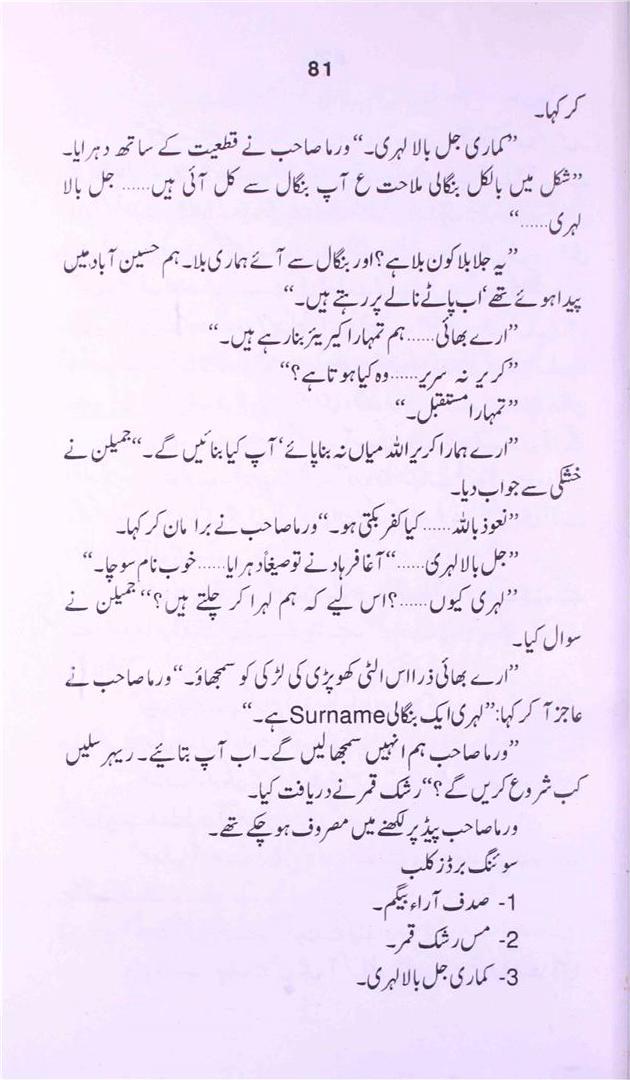 81
کر کہا۔
”کماری جل بالا لہری۔“ ورما صاحب نے قطعیت کے ساتھ دہرایا۔
”شکل میں بالکل بنگالی ملاحت ع آپ بنگال سے کل آئی ہیں...... جل بالا
لہری......“
”یہ جلا بلا کون بلا ہے؟ اور بنگال سے آئے ہماری بلا۔ ہم حسین آباد میں
پیدا ہوئے تھے‘ اب پاٹے نالے پر رہتے ہیں۔“
”ارے بھائی...... ہم تمہارا کیریئر بنا رہے ہیں۔“
”کریر نہ سریر...... وہ کیا ہوتا ہے؟“
”تمہارا مستقبل۔“
”ارے ہمارا کریر اللہ میاں نہ بنا پائے‘ آپ کیا بنائیں گے۔“ جمیلن نے
خشکی سے جواب دیا۔
”نعوذ باللہ...... کیا کفر بکتی ہو۔“ ورما صاحب نے برا مان کر کہا۔
”جل بالا لہری......“ آغا فرہاد نے توصیفاً دہرایا...... خوب نام سوچا۔“
”لہری کیوں......؟ اس لیے کہ ہم لہرا کر چلتے ہیں؟“ جمیلن نے
سوال کیا۔
”ارے بھائی ذرا اس الٹی کھوپڑی کی لڑکی کو سمجھاؤ۔“ ورما صاحب نے
عاجز آ کر کہا: ”لہری ایک بنگالی Surname ہے۔“
”ورما صاحب ہم انہیں سمجھا لیں گے۔ اب آپ بتائیے۔ ریہرسلیں
کب شروع کریں گے؟“ رشک قمر نے دریافت کیا۔
ورما صاحب پیڈ پر لکھنے میں مصروف ہو چکے تھے۔
سوئنگ برڈز کلب
1- صدف آراء بیگم۔
2- مس رشک قمر۔
3- کماری جل بالا لہری۔